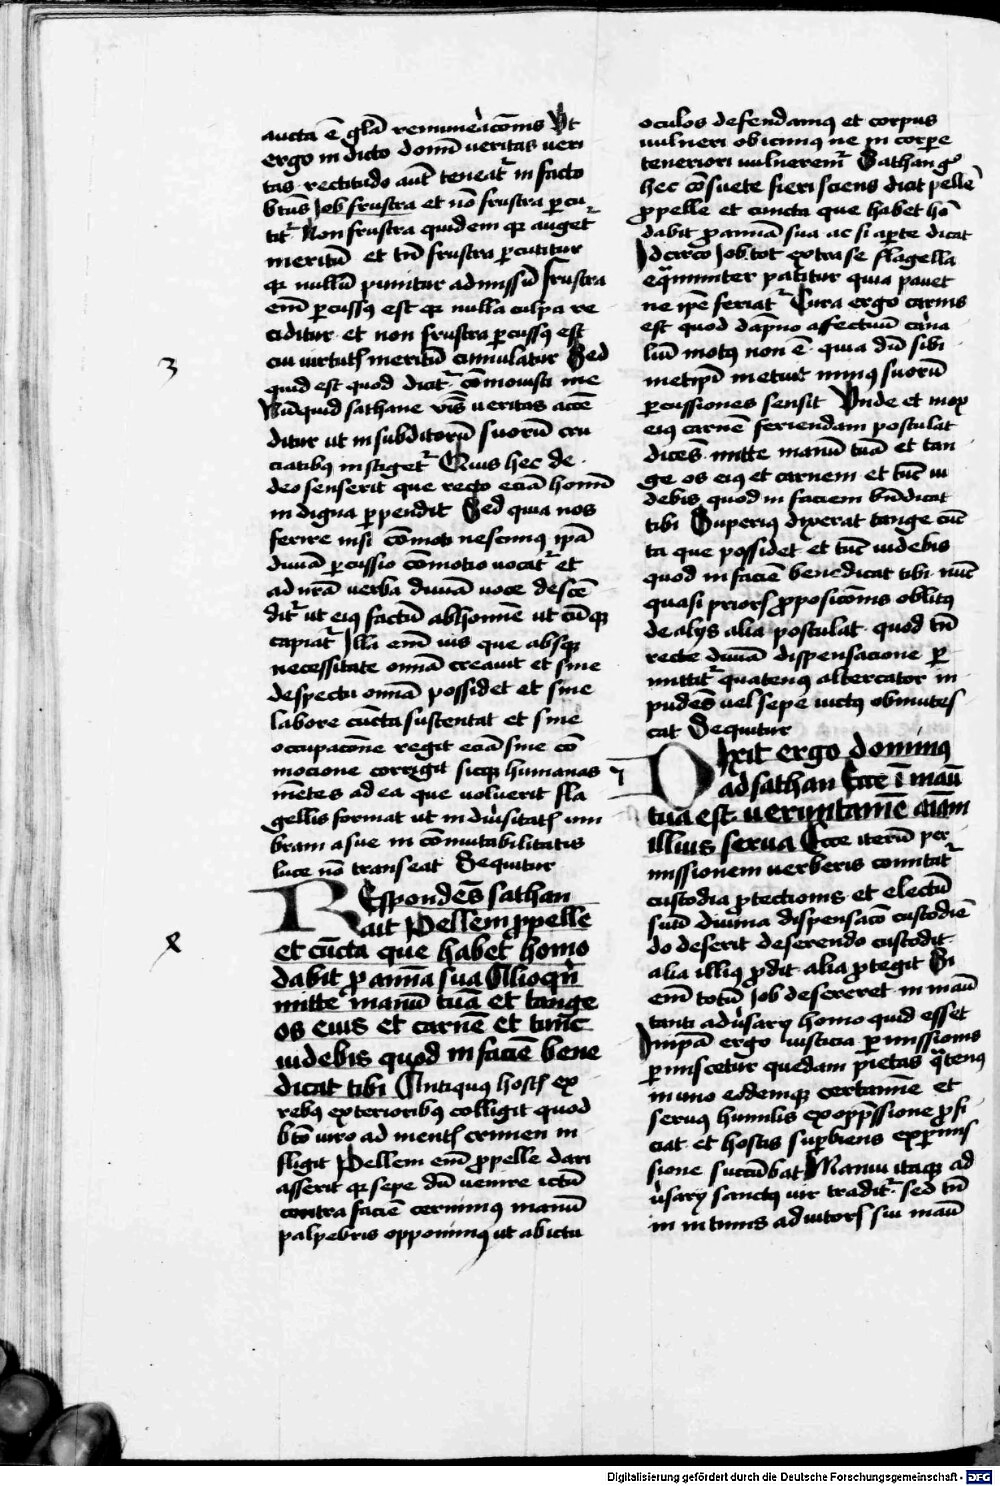 aucta ē glā remuneͣacōnis Ut
ergo in dicto domī ueritas ueri
tas rectitudo aut̄ teneat᷑ in facto
btūs Job frustra et nō frustra ꝑcu
tit᷑ Non frustra quidem qꝛ auget᷑
meritū et tn̄ frustra ꝑcutitur
qꝛ nullū punitur admissū frustra
em̄ ꝑcussꝯ est qꝛ nulla culpa re
ciditur et non frustra ꝑcussꝯ est
cui uirtutꝭ meritū cumulatur Sed
3
quid est quod dicit᷑ cōmouisti me
Nūquid sathane vīs ueritas accē
ditur ut in subditorū suorū cru
ciatibꝯ instiget᷑ Quis hec de
deo senserit que rego eciā homī
indigna ꝑpendit Sed quia nos
ferire nisi cōmoti nescimꝯ ip̄ā
diuīā ꝑcussio cōmotio uocat᷑ et
ad nr̄ā uerba diuīā uoce descē
dit᷑ ut eiꝯ factū ab homīe utcūqꝫ
capiat᷑ Illa em̄ uis que absqꝫ
necessitate omīa creauit et sine
despectu omīa possidet et sine
labore cūcta sustentat et sine
occupacōne regit eciā sine cō
mocione corrigit sicqꝫ humanas
mētes ad ea que uoluerit fla
gellis format ut in diu͛sitatꝭ um
bram a sue incōmutabilitatis
luce nō transeat Sequitur
REspondēs sathan
ait Pellem ꝓ pelle
et cūcta que habet homo
dabit ꝓ anīma sua Alioqn̄
mitte manū tuā et tange
os eius et carnē et tunc
uidebis quod in faciē bene
dicat tibi Antiquꝯ hostꝭ ex
rebꝯ exterioribꝯ colligit quod
btō uiro ad mentꝭ crimen in
fligit Pellem em̄ ꝓ pelle dari
asserit qꝛ sepe dū uenire ictū
contra faciē cernimꝯ manū
palpebris opponimꝯ ut ab ictu
oculos defendamꝯ et corpus
uulneri obicimꝯ ne in corpe
teneriori uulneremᷣ Sathan gͦ
hec cōsuete fieri sciens dicit pellē
ꝓ pelle et cuncta que habet hō
dabit ꝓ anīmā sua ac si aꝑte dicat
Idcirco Job tot extra se flagella
eqͣnimiter patitur quia pauet
ne ip̄e feriat᷑ Cura ergo carnis
est quod dāpno affectuū carna
liū motꝯ non ē quia dū sibi
metip̄i metuit minꝯ suorū
ꝑcussiones sensit Unde et mox
eiꝯ carnē feriendam postulat
dicēs mitte manū tuā et tan
ge os eiꝯ et carnem et tūc ui
debis quod in faciem bn̄dicat
tibi Superiꝯ dixerat tange cūc
ta que possidet et tūc uidebis
quod in faciē benedicat tibi nūc
quasi priorꝭ ꝓposicōnis oblitꝯ
de alijs alia postulat quod tn̄
recte diuīā dispensacione ꝑ
mittit᷑ quatenꝯ altercator in
pudēs uel sepe uictꝯ obmutes
cat Sequitur
DIxit ergo dominꝯ
ad sathan Ecce ī manū
tua est ueruntamē aīam
illius serua Ecce iterū per
missionem uerberis comitat᷑
custodia ꝓtectionis et electū
suū diuina dispensacō custodiē
do deserit deserendo custodit
alia illiꝯ ꝓdit alia ꝓtegit Si
em̄ totū Job desereret in manū
tanti adu͛sarij homo quid esset
Inip̄ā ergo iusticia ꝑmissionis
ꝑmiscetur quedam pietas qͣtenꝯ
in uno eodemqꝫ certamīe et
seruꝯ humilis ex opp̄ssione ꝓfi
ciat et hostis suꝑbiens ex ꝑmis
sione succūbat Manui itaqꝫ ad
u͛sarij sanctꝯ uir tradit᷑ sed tn̄
in intimis adiutorꝭ sui manū
Digitalisierung gefördert durch die Deutsche Forschungsgemeinschaft - DFG